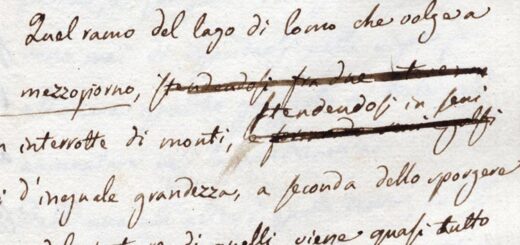 Quel ramo del lago di Como che volge a
mezzogiorno, stendendosi fra due
stendendosi in seni
interrotte di monti, e
d'ineguale grandezza, a seconda dello sporgere
di quelli viene quasi tutto